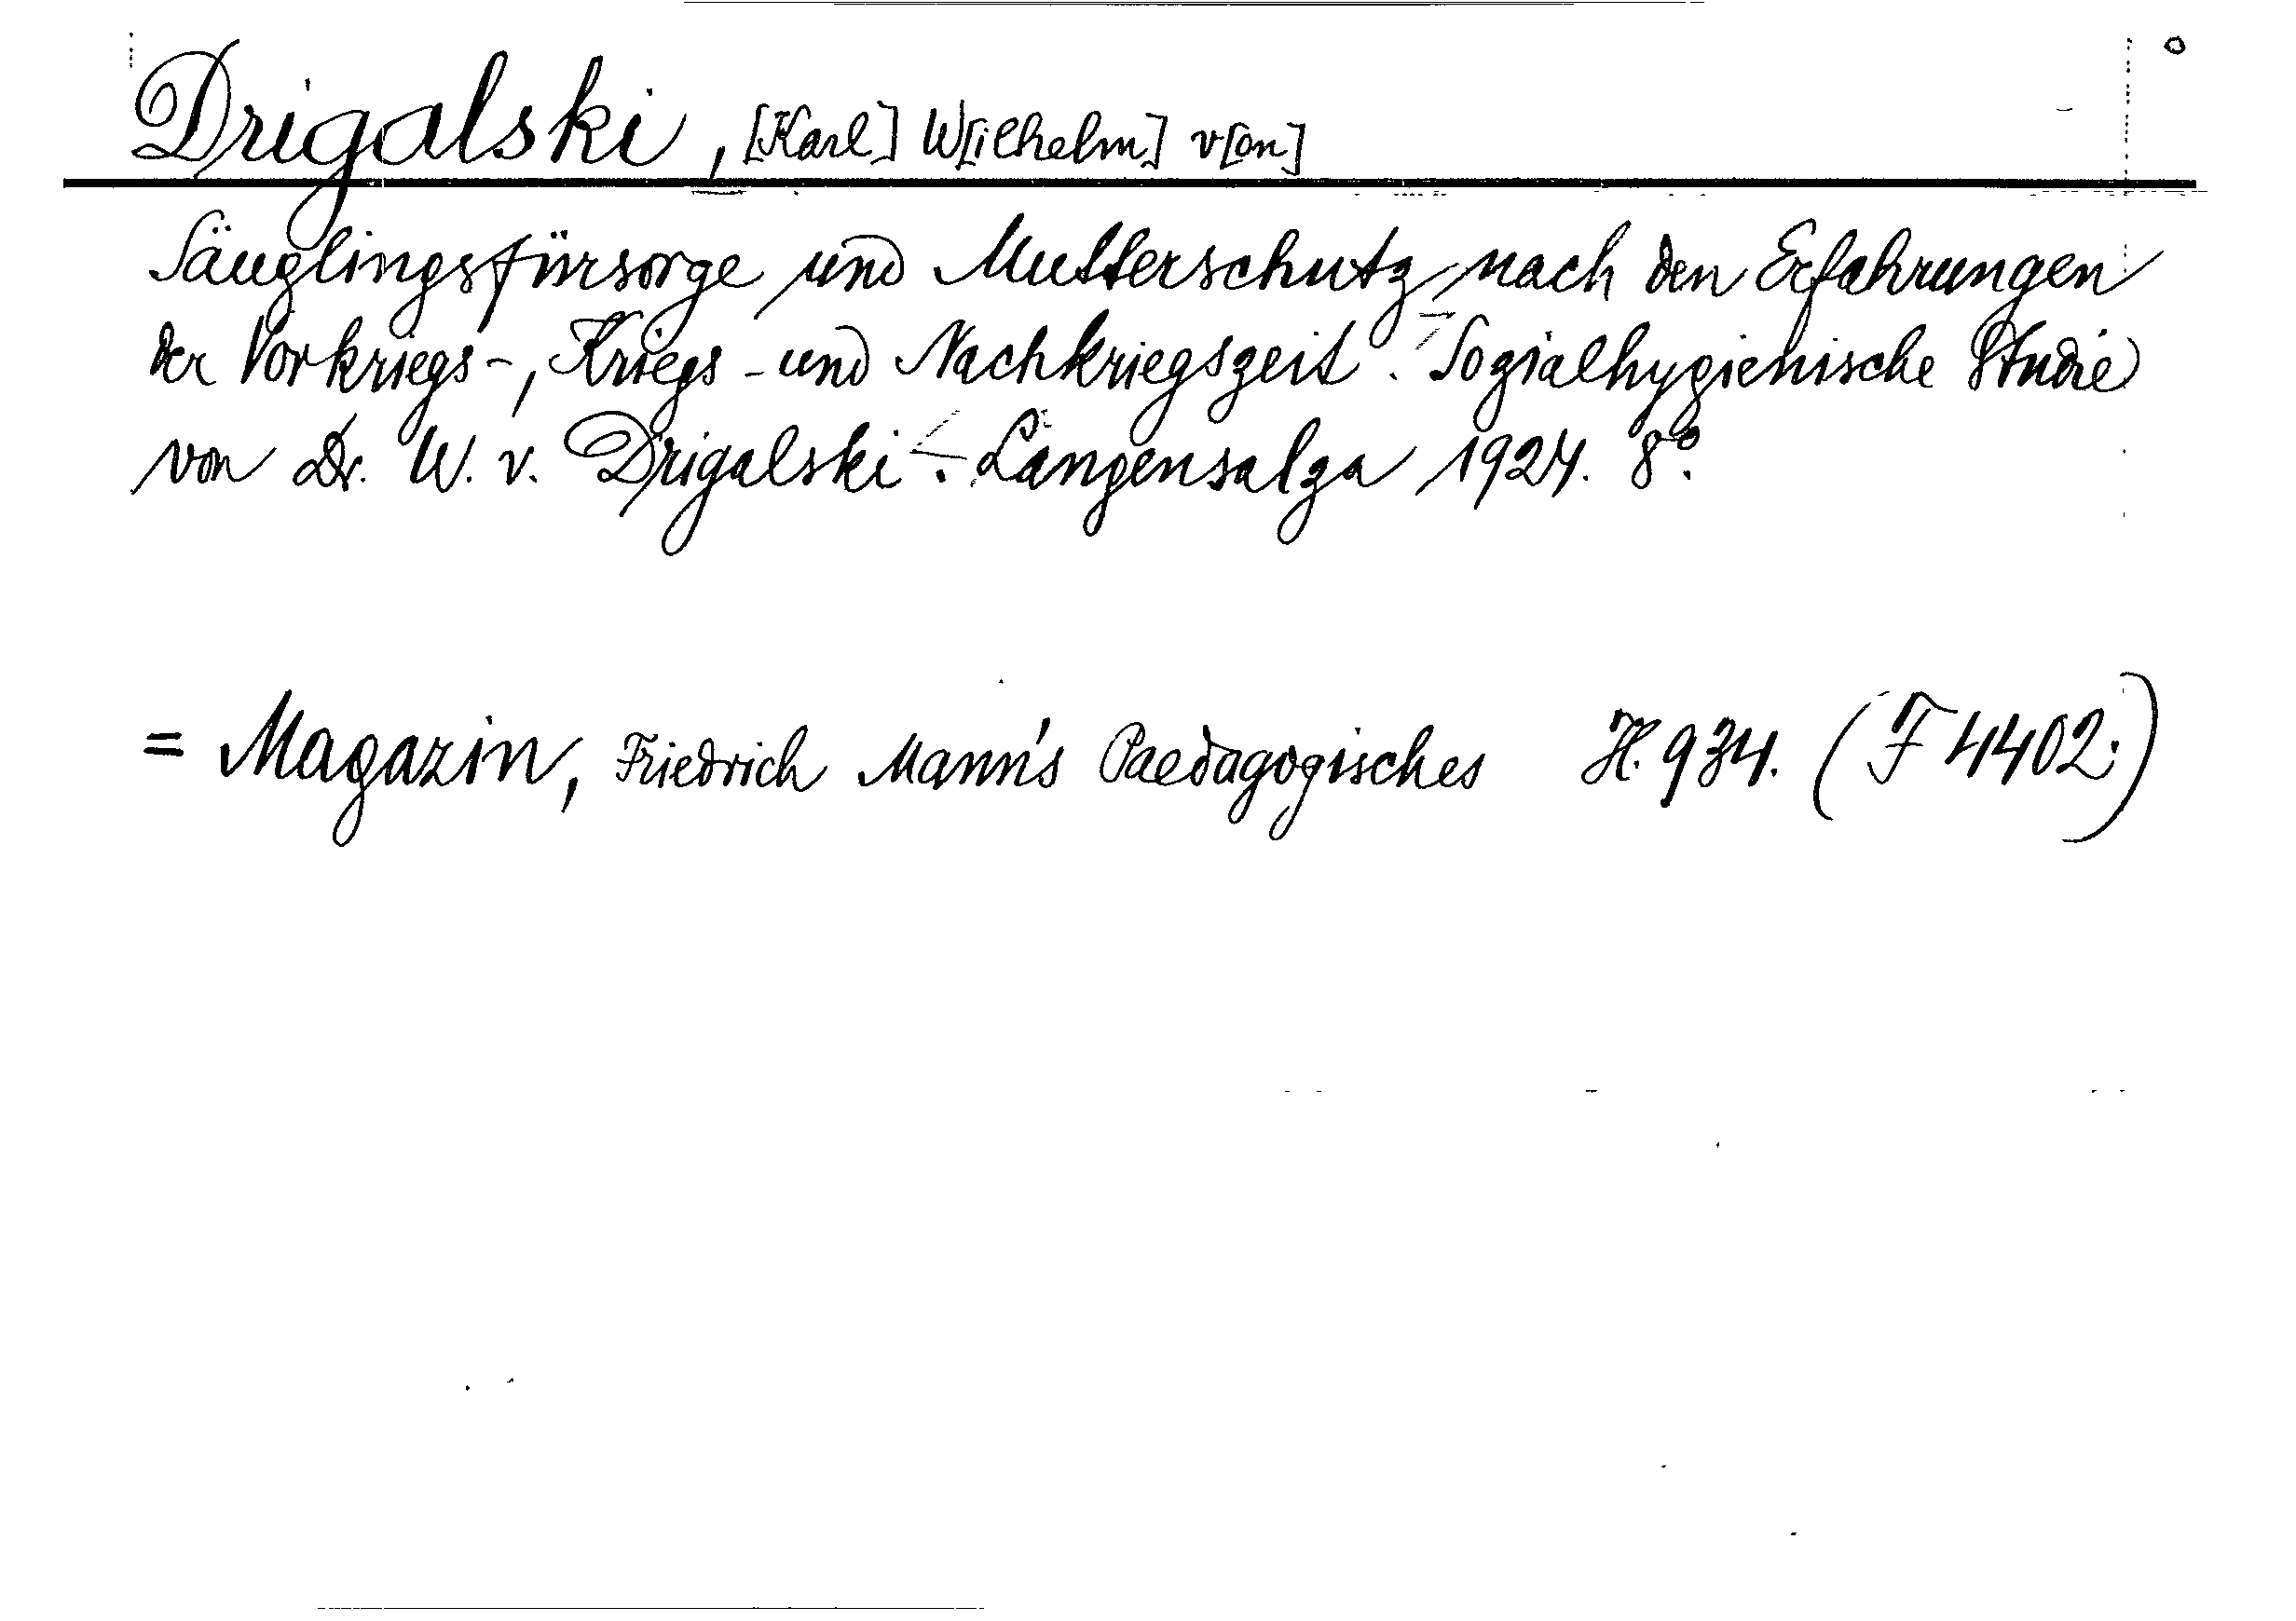 Drigalski, [Karl] W[ilhelm] v[on]
Säuglingsfürsorge und Mutterschutz nach den Erfahrungen
der Vorkriegs-, Kriegs- und Nachkriegszeit. Sozialhygienische Studie
von Dr. W. v. Drigalski. Langensalza 1924. 8°.
= Magazin, Friedrich Mann's Paedagogisches H. 934. (F 4402.)